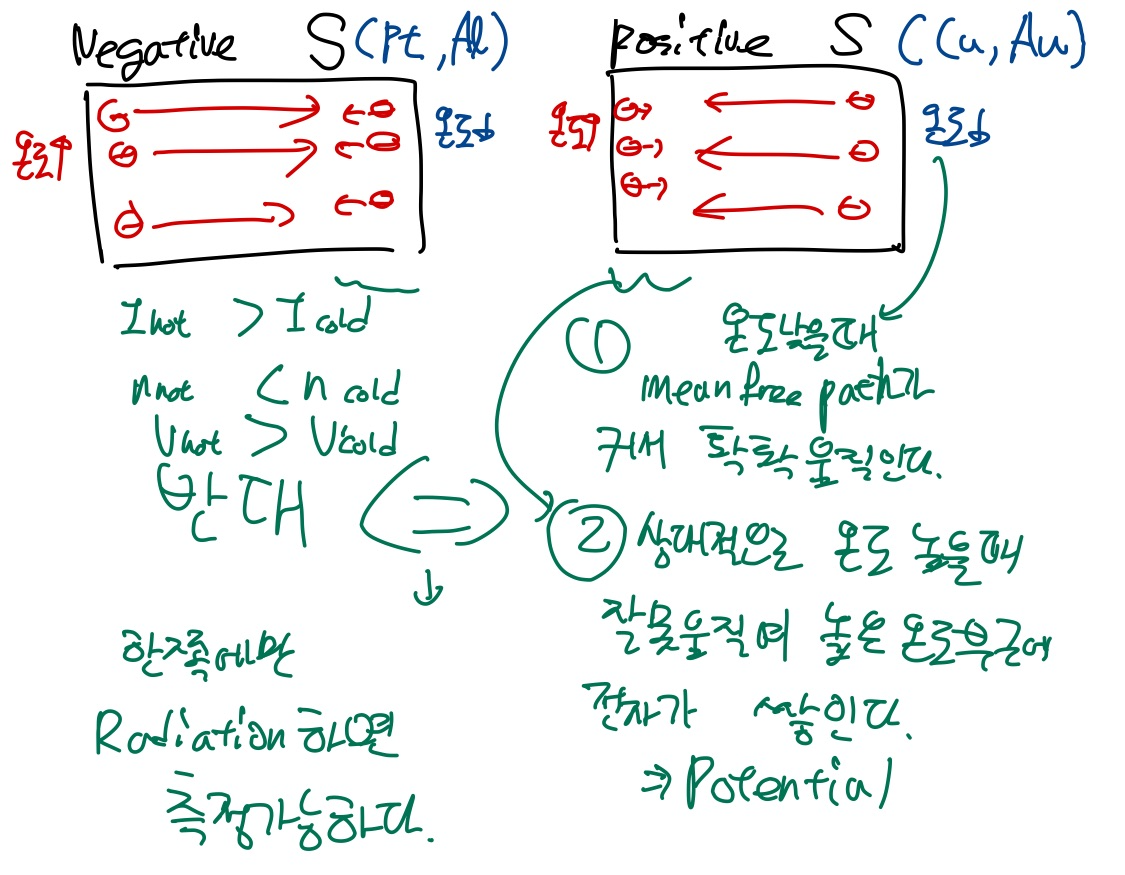 Negative S (Pt, Al)
온도↑
온도↓
I hot > I cold
n hot < n cold
V hot > V cold
반대 <=>
↓
한쪽에만
Radiation 하면
측정가능하다.
Positive S (Cu, Au)
온도↑
온도↓
① 온도낮을때
mean free path가
커서 확확 움직인다.
② 상대적으로 온도 높을때
잘못움직여 높은 온도부근에
전자가 쌓인다.
⇒ Potential